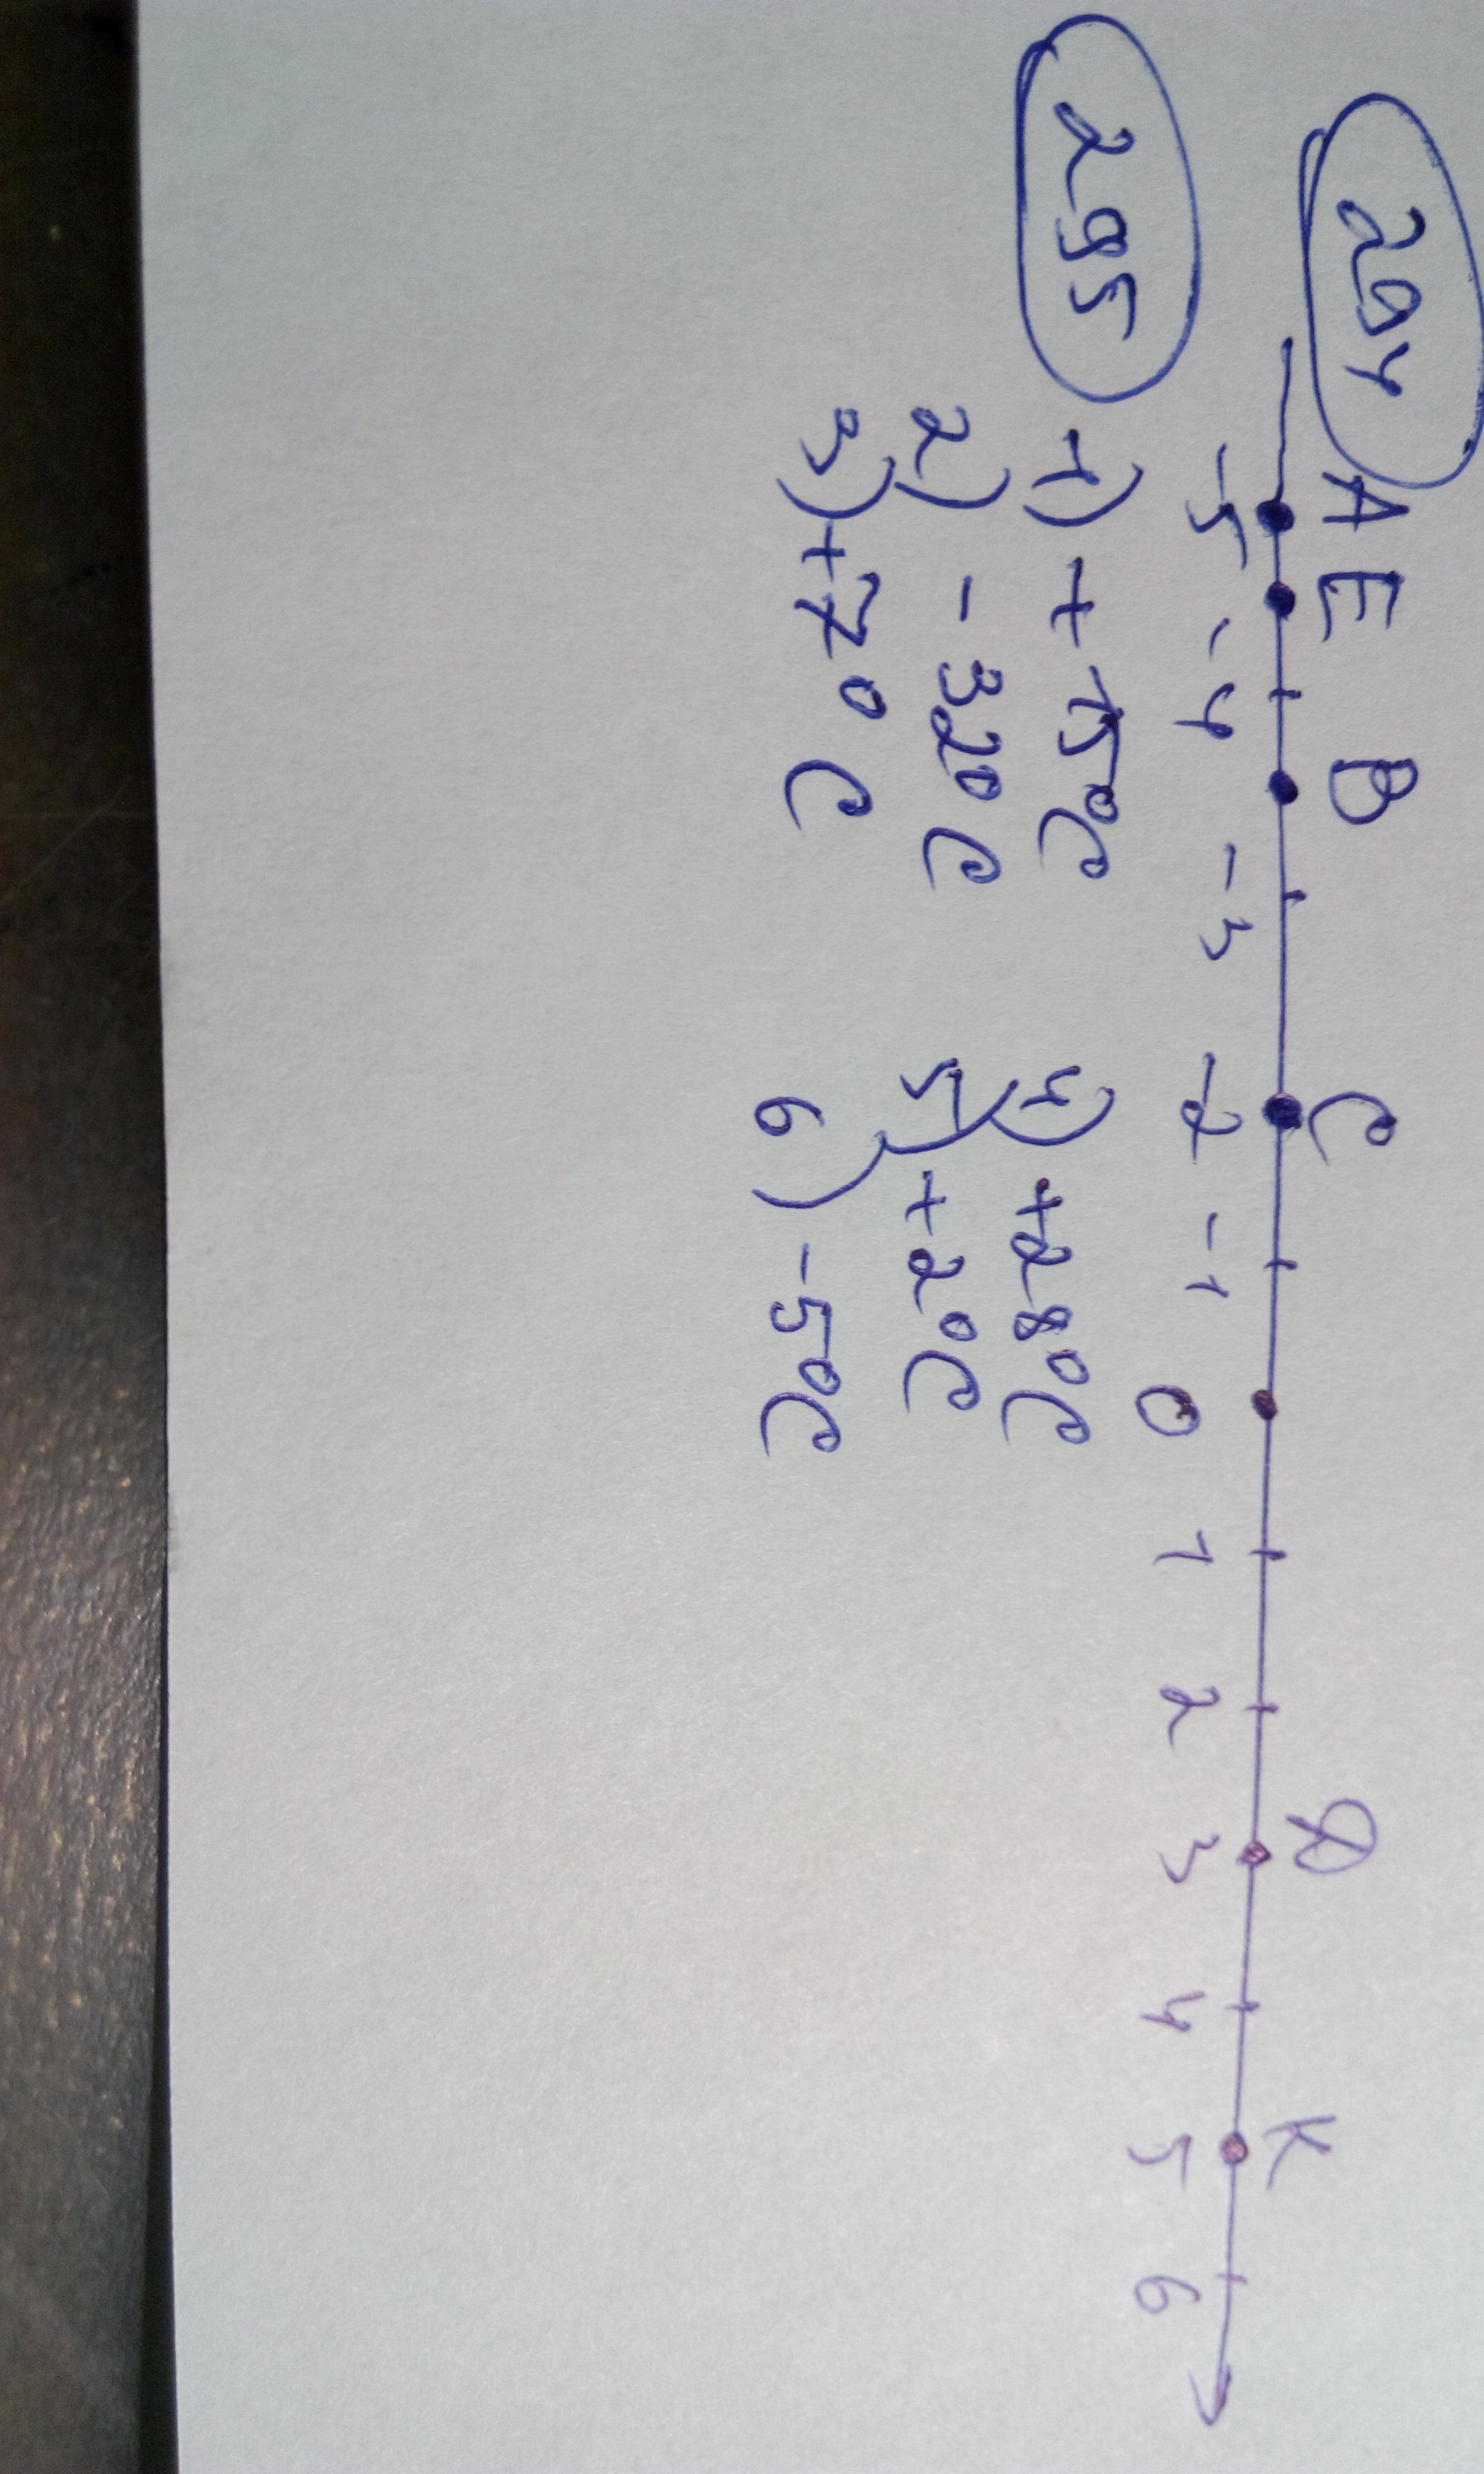 294
A E B C D K
-5 -4 -3 -2 -1 0 1 2 3 4 5 6
295
1) +15°C 4) +28°C
2) -32°C 5) +2°C
3) +7°C 6) -5°C